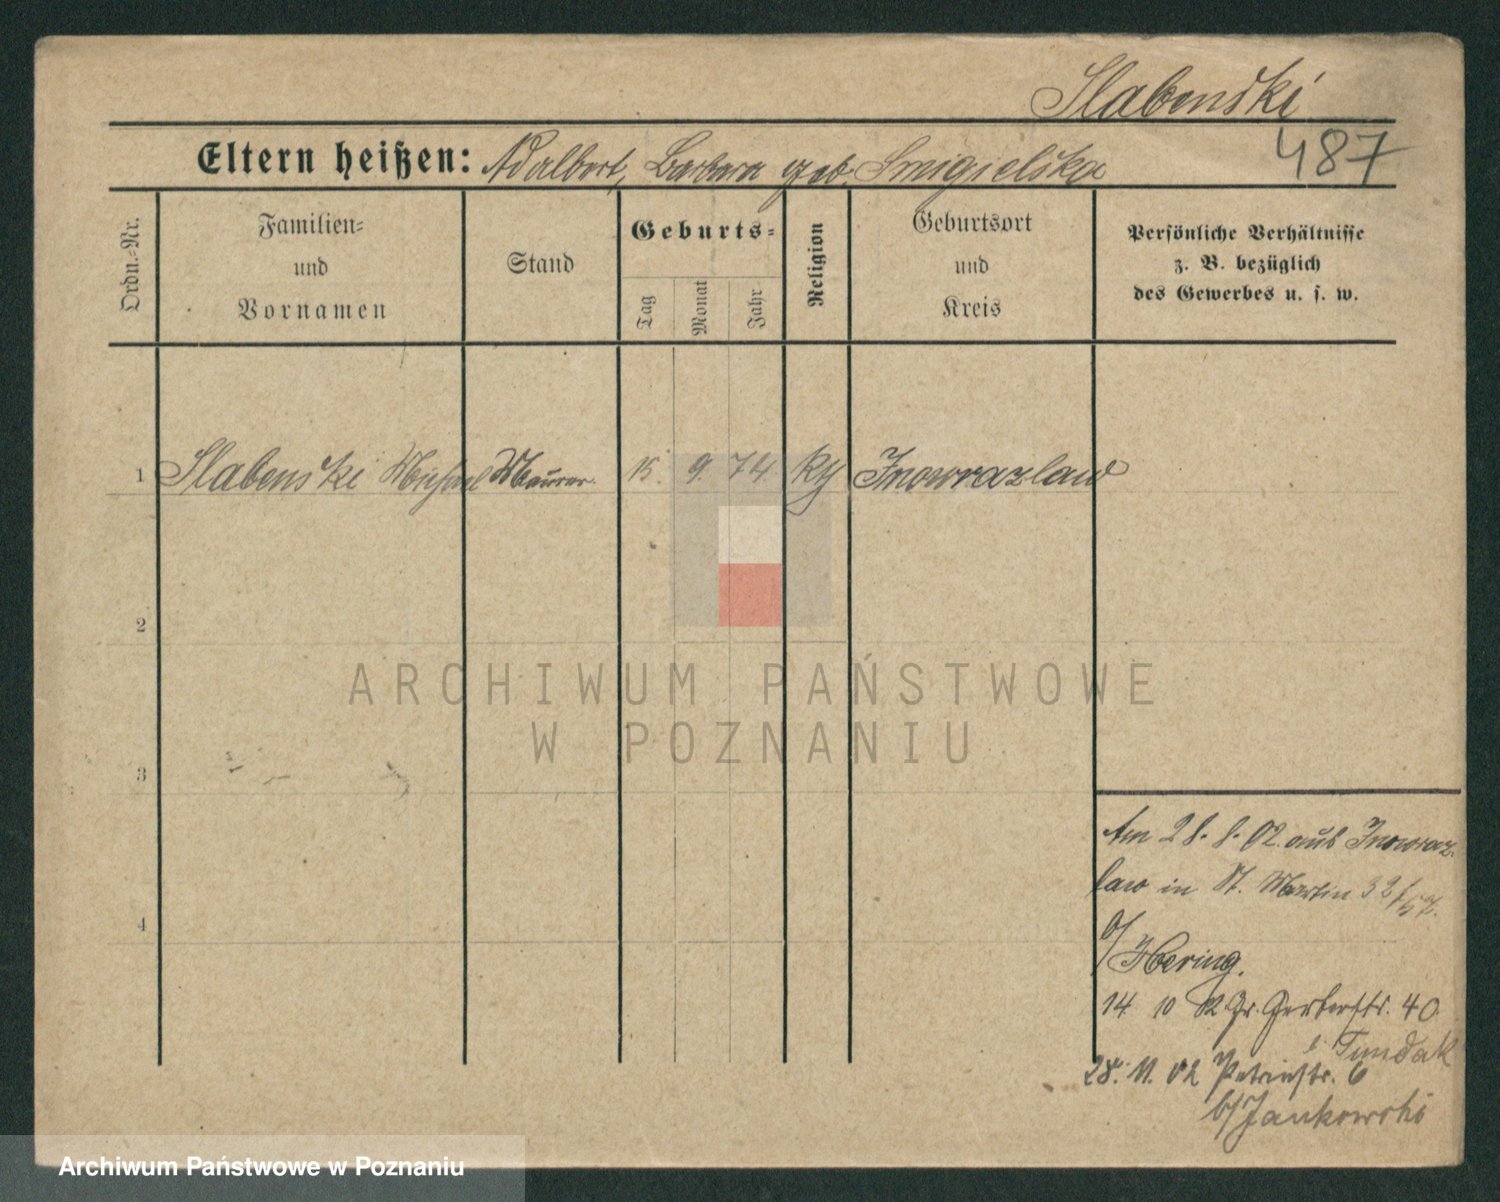 Slabenski
487
Eltern heißen: Adalbert, Barbara geb. Smigielska
Ordn.-Nr.
Familien-
und
Vornamen
Stand
Geburts-
Tag
Monat
Jahr
Religion
Geburtsort
und
Kreis
Persönliche Verhältnisse
z. B. bezüglich
des Gewerbes u. s. w.
1 Slabenski Michael Maurer 15. 9. 74 kth Inowrazlaw
2
3
4
Am 28. 8. 02. aus Inowraz-
law in St. Martin 32/57.
b/ Hering.
14 10 02 Gr. Gerberstr. 40
b/ Tundak
28. 11. 02 Petristr. 6
b/ Jankowski
ARCHIWUM PAŃSTWOWE
W POZNANIU
Archiwum Państwowe w Poznaniu